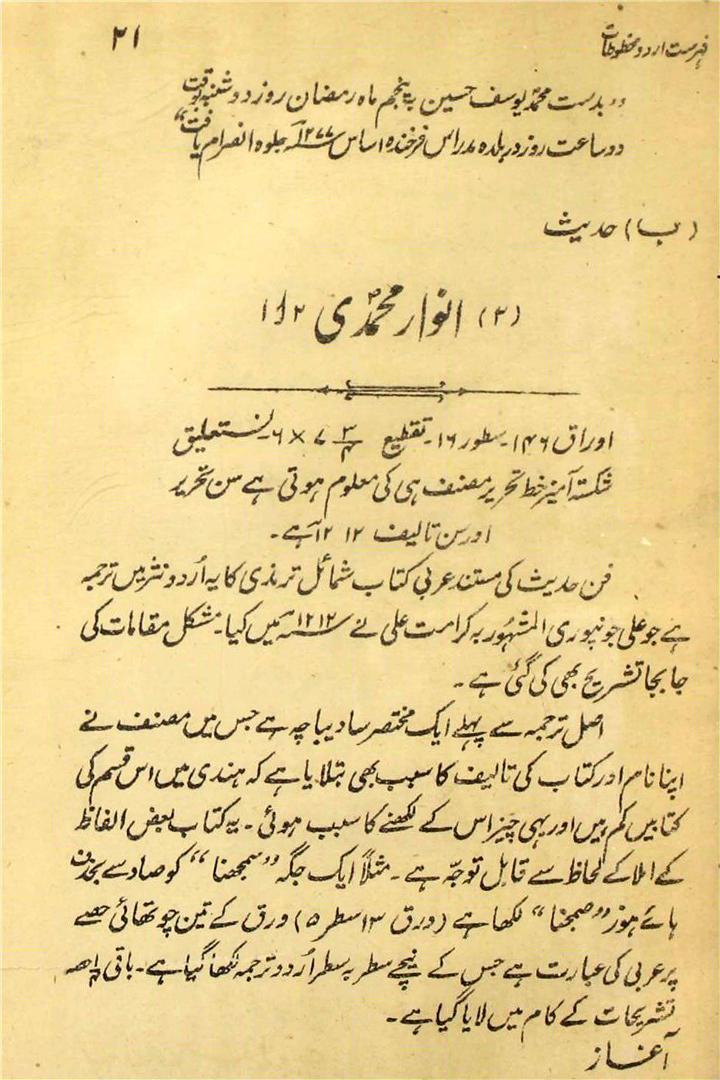 فہرست اردو مخطوطات
۲۱
”بدست محمد یوسف حسین بہ پنجم ماہ رمضان روز دوشنبہ بوقت
دو ساعت روز در بلدہ مدراس فرخندہ اساس ۱۲۷۷ھ جلوہ انصرام یافت“
(ب) حدیث
(۲) انوار محمدؐی
اوراق ۱۴۶۔ سطور ۱۶۔ تقطیع ۷ ۳/۴ × ۶۔ نستعلیق
شکستہ آمیز خط تحریر مصنف ہی کی معلوم ہوتی ہے سن تحریر
اور سن تالیف ۱۲۱۲ھ ہے۔
فن حدیث کی مستند عربی کتاب شمائل ترمذی کا یہ اُردو نثر میں ترجمہ
ہے جو علی جونپوری المشہور بہ کرامت علی نے ۱۲۱۲ھ میں کیا۔ مشکل مقامات کی
جابجا تشریح بھی کی گئی ہے۔
اصل ترجمہ سے پہلے ایک مختصر سا دیباچہ ہے جس میں مصنف نے
اپنا نام اور کتاب کی تالیف کا سبب بھی بتلایا ہے کہ ہندی میں اس قسم کی
کتابیں کم ہیں اور یہی چیز اس کے لکھنے کا سبب ہوئی۔ یہ کتاب بعض الفاظ
کے املا کے لحاظ سے قابل توجّہ ہے۔ مثلاً ایک جگہ ”سمجھنا“ کو صاد سے بحذف
ہائے ہوز ”صمجنا“ لکھا ہے (ورق ۱۳ سطر ۵) ورق کے تین چوتھائی حصے
پر عربی کی عبارت ہے جس کے نیچے سطر بہ سطر اُردو ترجمہ لکھا گیا ہے۔ باقی حصہ
تشریحات کے کام میں لایا گیا ہے۔
آغاز